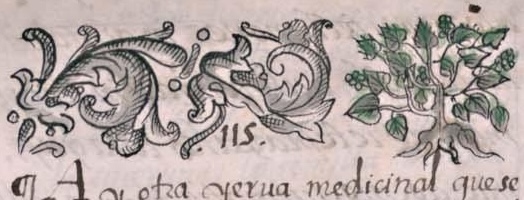 .115.
¶ Ay otra yerua medicinal que se